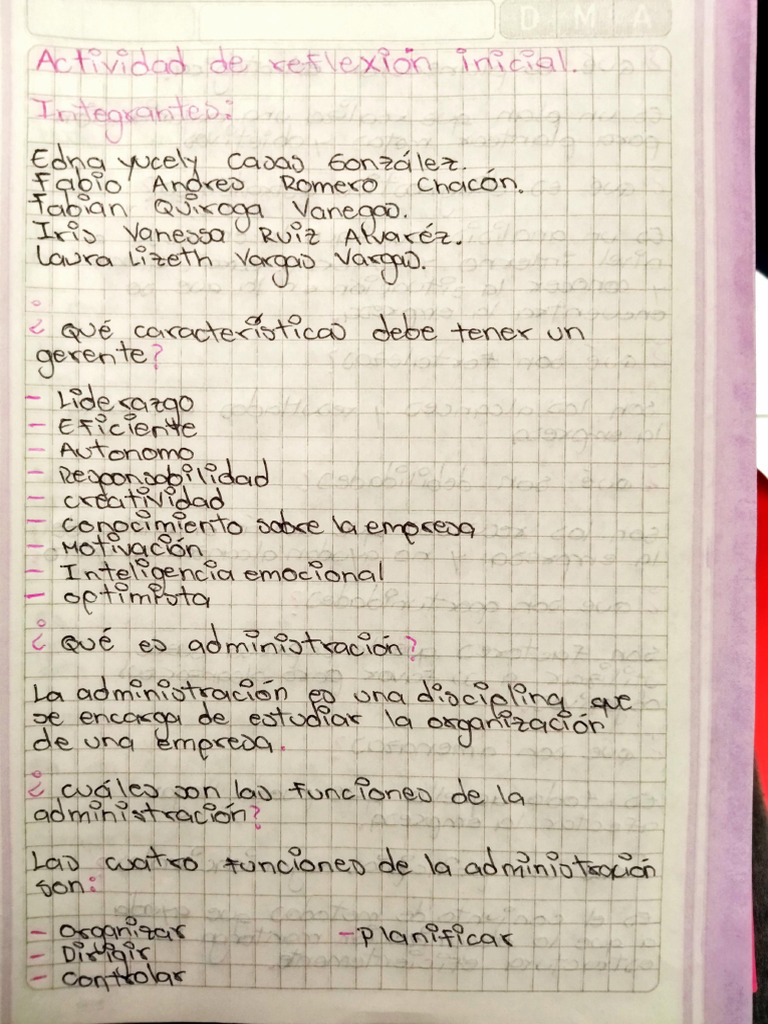 D M A
Actividad de reflexión inicial.
Integrantes:
Edna yucely Casas González.
Fabio Andres Romero Chacón.
Fabian Quiroga Vanegas.
Iris Vanessa Ruiz Alvaréz.
Laura Lizeth Vargas Vargas.
¿ Qué caracteristicas debe tener un
gerente?
- Liderazgo
- Eficiente
- Autonomo
- Responsabilidad
- creatividad
- conocimiento sobre la empresa
- Motivación
- Inteligencia emocional
- optimista
¿ Qué es administración?
La administración es una disciplina que
se encarga de estudiar la organización
de una empresa.
¿ cuáles son las funciones de la
administración?
Las cuatro funciones de la administración
son:
- Organizar - Planificar
- Dirigir
- Controlar